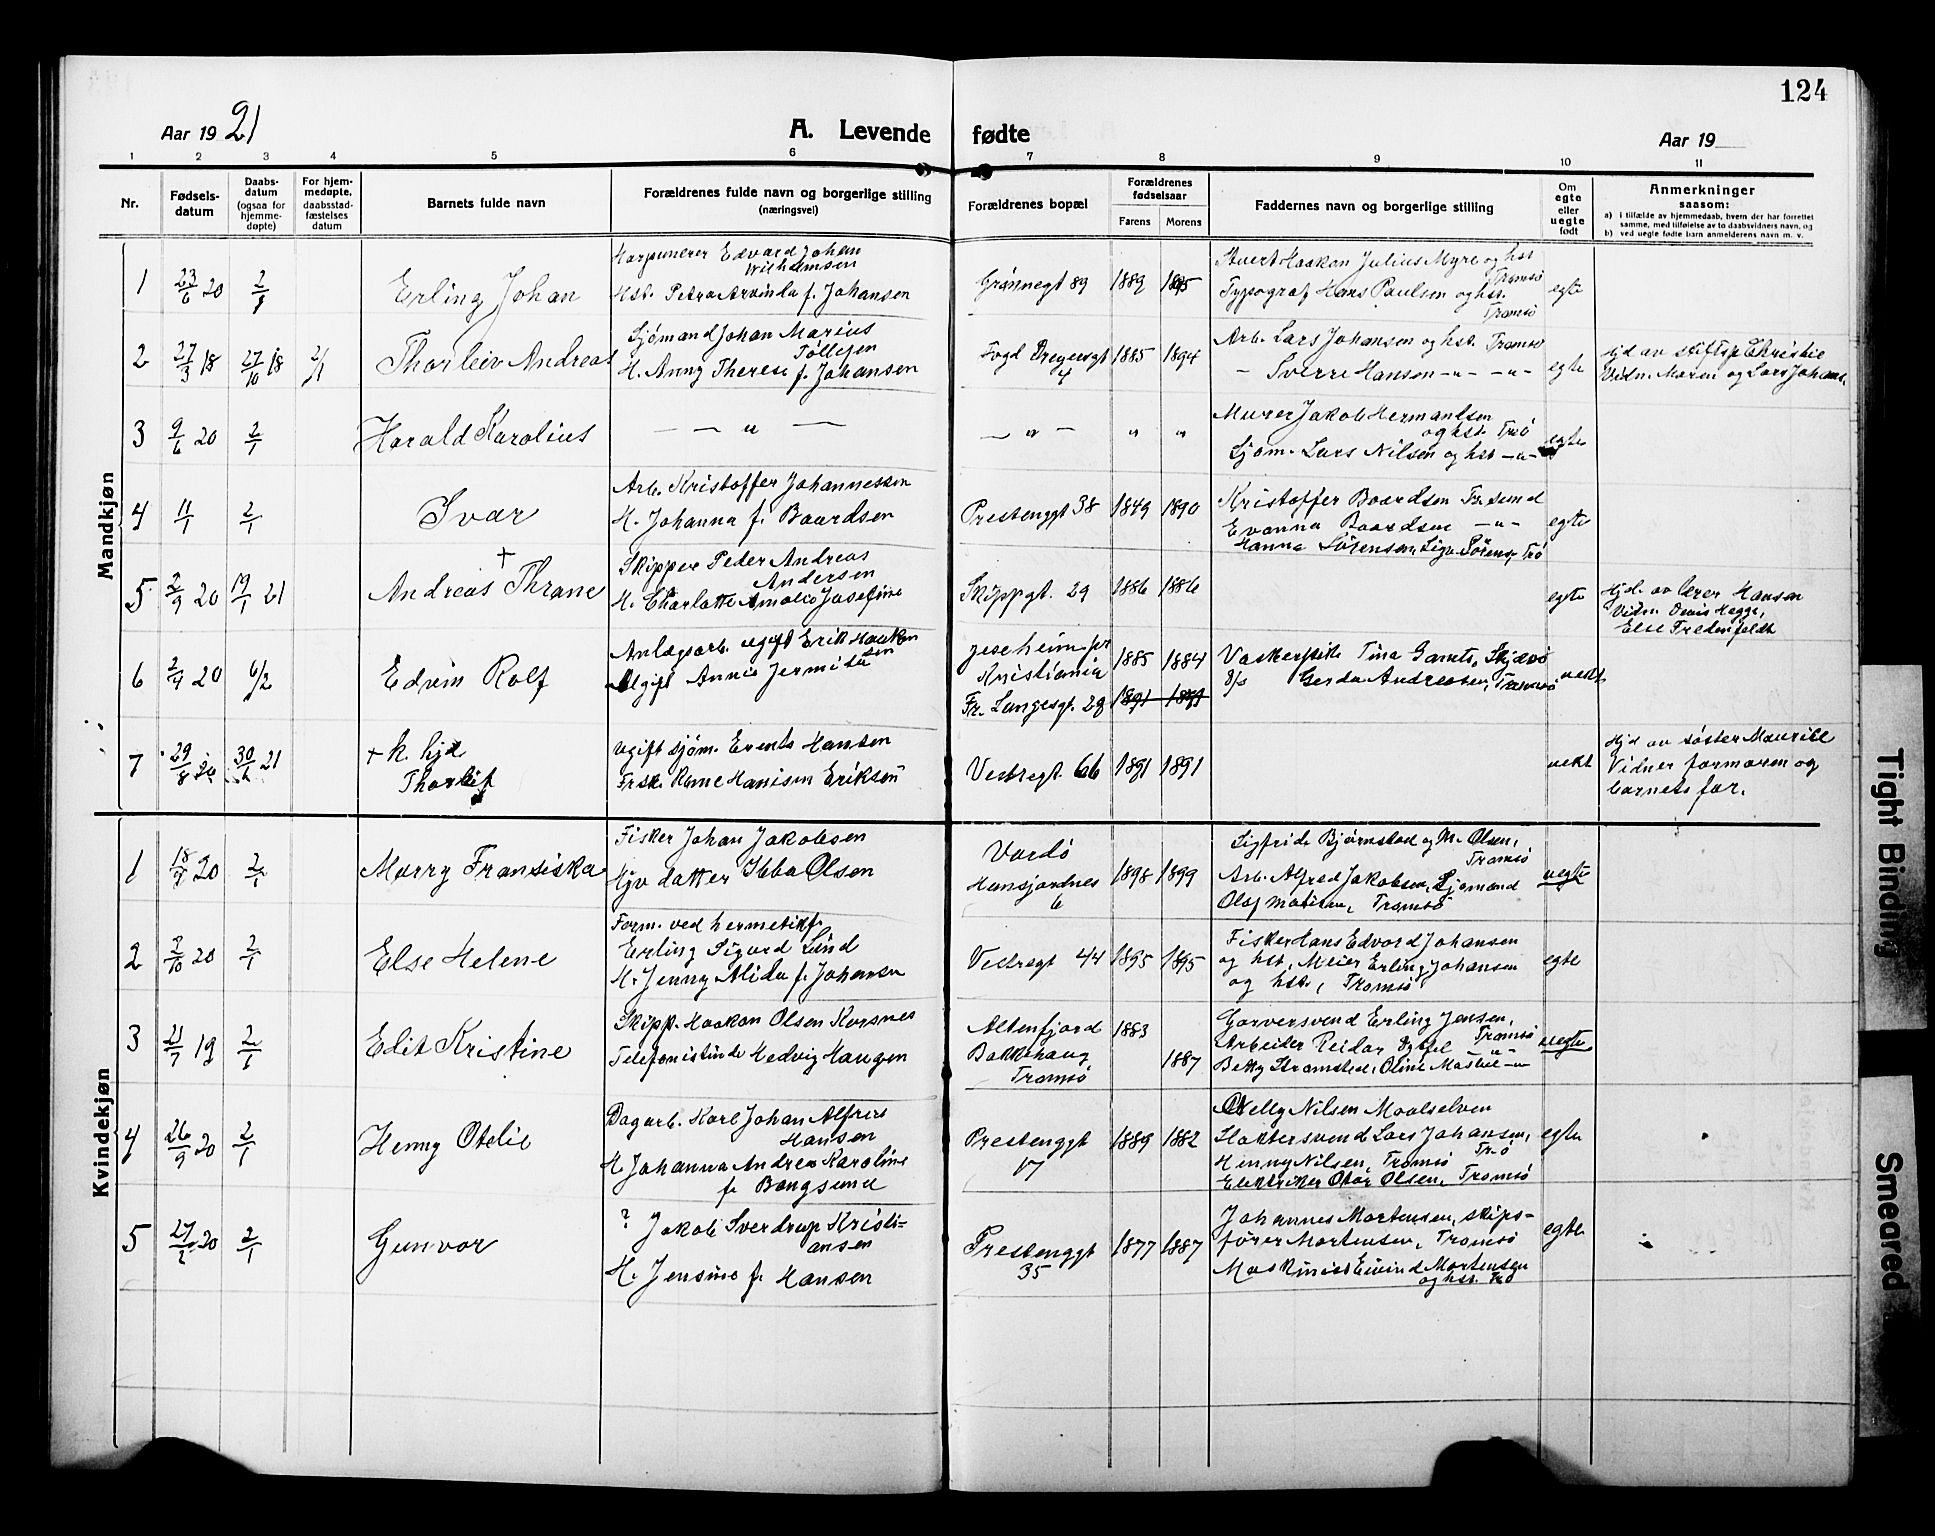 124
Aar 1921
A. Levende fødte
Aar 19
1 2 3 4 5 6 7 8 9 10 11
Nr.
Fødsels-
datum
Daabs-
datum
(ogsaa for
hjemme-
døpte)
For hjem-
medøpte,
daabsstad-
fæstelses
datum
Barnets fulde navn
Forældrenes fulde navn og borgerlige stilling
(næringsvei)
Forældrenes bopæl
Forældrenes
fødselsaar
Farens Morens
Faddernes navn og borgerlige stilling
Om
egte
eller
uegte
født
Anmerkninger
saasom:
a) i tilfælde av hjemmedaab, hvem der har forrettet
samme, med tilføielse av to daabsvidners navn, og
b) ved uegte fødte barn anmelderens navn m. v.
Mandkjøn
1 23/6 20 2/1 Erling Johan
Harpunerer Edvard Johan
Wilhelmsen
Hst. Petra Arvinda f. Johansen
Grønnegt 89 1889 1895
Stuert Haakon Julius Myre og hst
Tromsø
Typograf Hans Paulsen og hst.
Tromsø
egte
2 27/3 18 27/10 18 2/1 Thorleiv Andreas
Sjømand Johan Marius
Tøllefsen
H. Anny Therese f. Johansen
Fogd Dreyersgt
4
1885 1894
Arb. Lars Johansen og hst. Tromsø
- Sverre Hansen -"- -"-
egte
Hjd av stiftsp Christie
Vidn. Moren og Lars Johans.
3 9/6 20 2/1 Harald Karolius
— — " —
— " — " "
Murer Jakob Hermandsen
og hst. Trsø
Sjøm. Lars Nilsen og hst -"-
egte
4 11/1 2/1 Ivar
Arb. Kristoffer Johannessen
H. Johanna f. Baardsen
Prestenggt 38 1849 1890
Kristoffer Baardsen Tr.sund
Evanna Baardsen -"-
Hanna Sørensen, Sigv. Sørens, Trsø
egte
5 2/9 20 19/1 21 + Andreas Thrane
Skipper Peder Andreas
Andersen
H. Charlotte Amalie Josefine
Skippgt. 29 1886 1886
egte
Hjd. av lærer Hansen
Vidn. Denis Hegge,
Else Fredenfeldt
6 2/4 20 6/2 Edvin Rolf
Anlægsarb. ugift Erik Haakon
sen
Ugift Annie Jermita
Kristiania
Fr. Langesgt. 29
1885 1884
1891 1891
Vaskerpike Tina Gamts, Skjervø
Gerda Andreasen, Tromsø
uekt
7 29/8 20 30/1 21 + k. hjd
Thorleif
Ugift sjøm. Erents Hansen
Frsk. Rame Hansen Eriksen
Vestregt. 66 1891 1891
uekt
Hjd av søster Maurille
Vidner farmoren og
barnets far.
Kvindekjøn
1 18/7 20 2/1 Marry Fransiska
Fisker Johan Jakobsen
Hjv datter Ebba Olsen
Vardø
Hansjordnes
6
1898 1899
Sigfride Bjørnstad og M. Olsen,
Tromsø
Arb. Alfred Jakobsen, Sjømand
Olaf Matisen, Tromsø
uegte
2 2/10 20 2/1 Else Helene
Form. ved hermetikf.
Erling Sigurd Lund
H. Jenny Alida f. Johansen
Vestregt 44 1895 1895
Fisker Hans Edvard Johansen
og hst, Meier Erling Johansen
og hst, Tromsø
egte
3 21/7 19 2/1 Edit Kristine
Skipp. Haakon Olsen Korsnes
Telefonistinde Hedvig Haugen
Altenfjord
Bakkehaug
Tromsø
1883
1887
Garversvend Erling Jensen,
Tromsø
Arbeider Peidar
Betty Strømsted, Oline -"-
uegte
4 26/9 20 2/1 Henny Otelie
Dagarb. Karl Johan Alfred
Hansen
H. Johanna Andrea Karoline
f. Bangsund
Prestenggt
17
1889 1882
Nelly Nilsen Maalselven
Slaktersvend Lars Johansen,
Trø
Henny Nilsen, Tromsø
Elektriker Otar Olsen, Tromsø
egte
5 27/2 20 2/1 Gunvor
? Jakob Sverdrup Kristi-
ansen
H. Jensine f. Hansen
Prestenggt
35
1877 1887
Johannes Mortensen, skips-
fører Mortensen, Tromsø
Maskinist Eivind Mortensen
og hst. Trø
egte
Tight Binding
Smeared